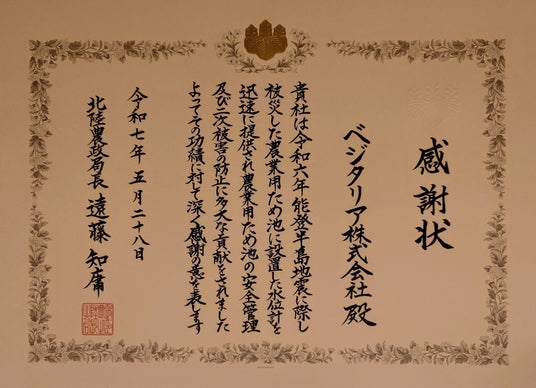 感謝状
ベジタリア株式会社 殿
貴社は令和六年能登半島地震に際し
被災した農業用ため池に設置した水位計を
迅速に提供され農業用ため池の安全管理
及び二次被害の防止に多大な貢献をされました
よってその功績に対して深く感謝の意を表します
令和七年五月二十八日
北陸農政局長 遠藤 知庸